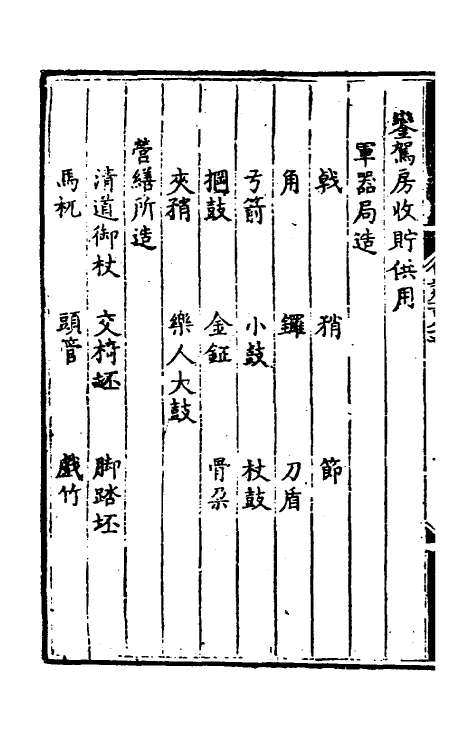 鑾駕房收貯供用
軍器局造
戟 矟 節
角 鑼 刀盾
弓箭 小鼓 杖鼓
掆鼓 金鉦 骨朶
夾矟 樂人大鼓
營繕所造
清道御杖 交椅坯 脚踏坯
馬杌 頭管 戲竹